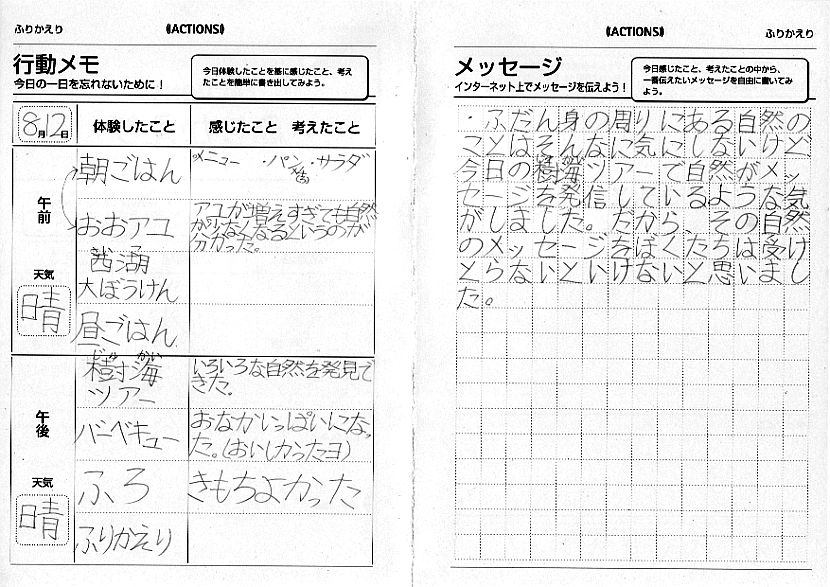 ふりかえり
《ACTIONS》
行動メモ
今日の一日を忘れないために！
今日体験したことを基に感じたこと、考え
たことを簡単に書き出してみよう。
8月12日
体験したこと
感じたこと 考えたこと
午前
天気
晴
朝ごはん
メニュー ・パン ・サラダ
おおアユ
アユが増えすぎても自然
が少なくなるというのが
分かった。
茜湖
大ぼうけん
昼ごはん
午後
天気
晴
じゅ かい
樹海
ツアー
いろいろな自然を発見で
きた。
バーベキュー
おなかいっぱいになっ
た。(おいしかったヨ)
ふろ
きもちよかった
ふりかえり
《ACTIONS》
ふりかえり
メッセージ
インターネット上でメッセージを伝えよう！
今日感じたこと、考えたことの中から、
一番伝えたいメッセージを自由に書いてみ
よう。
・ふだん身の周りにある自然の
ことはそんなに気にしないけど
今日の樹海ツアーで自然がメッ
セージを発信しているような気
がしました。だから、その自然
のメッセージをぼくたちは受け
とらないといけないと思いまし
た。